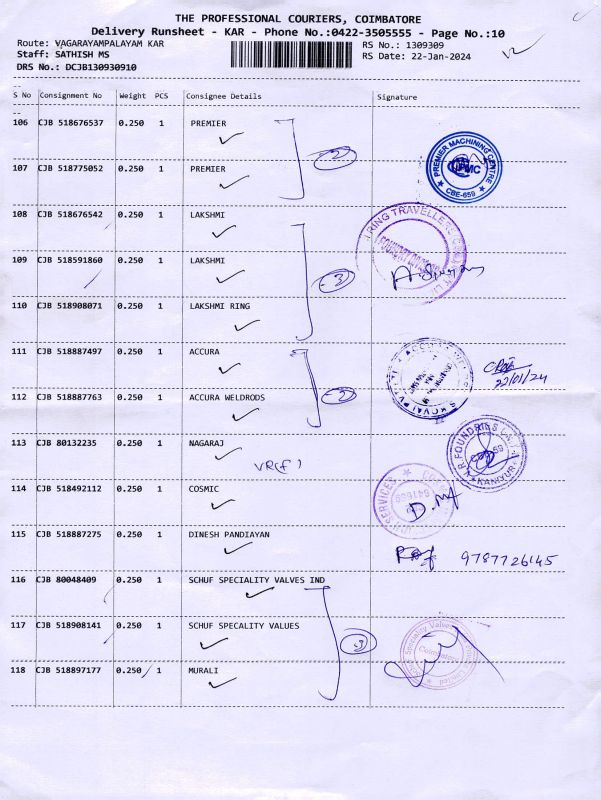 THE PROFESSIONAL COURIERS, COIMBATORE
Delivery Runsheet - KAR - Phone No.:0422-3505555 - Page No.:10
Route: VAGARAYAMPALAYAM KAR RS No.: 1309309
Staff: SATHISH MS RS Date: 22-Jan-2024
DRS No.: DCJB130930910
S No Consignment No Weight PCS Consignee Details Signature
106 CJB 518676537 0.250 1 PREMIER
PREMIER MACHINING CENTRE
PMC
CBE-659
2
107 CJB 518775052 0.250 1 PREMIER
108 CJB 518676542 0.250 1 LAKSHMI
RING TRAVELLERS
109 CJB 518591860 0.250 1 LAKSHMI
3
110 CJB 518908071 0.250 1 LAKSHMI RING
111 CJB 518887497 0.250 1 ACCURA
22/01/24
112 CJB 518887763 0.250 1 ACCURA WELDRODS
2
113 CJB 80132235 0.250 1 NAGARAJ
VR(f)
FOUNDRIES
KANIYUR
114 CJB 518492112 0.250 1 COSMIC
SERVICES
115 CJB 518887275 0.250 1 DINESH PANDIAYAN
9787726145
116 CJB 80048409 0.250 1 SCHUF SPECIALITY VALVES IND
117 CJB 518908141 0.250 1 SCHUF SPECALITY VALUES
3
Speciality Valves
Coimbatore
Limited
118 CJB 518897177 0.250 1 MURALI